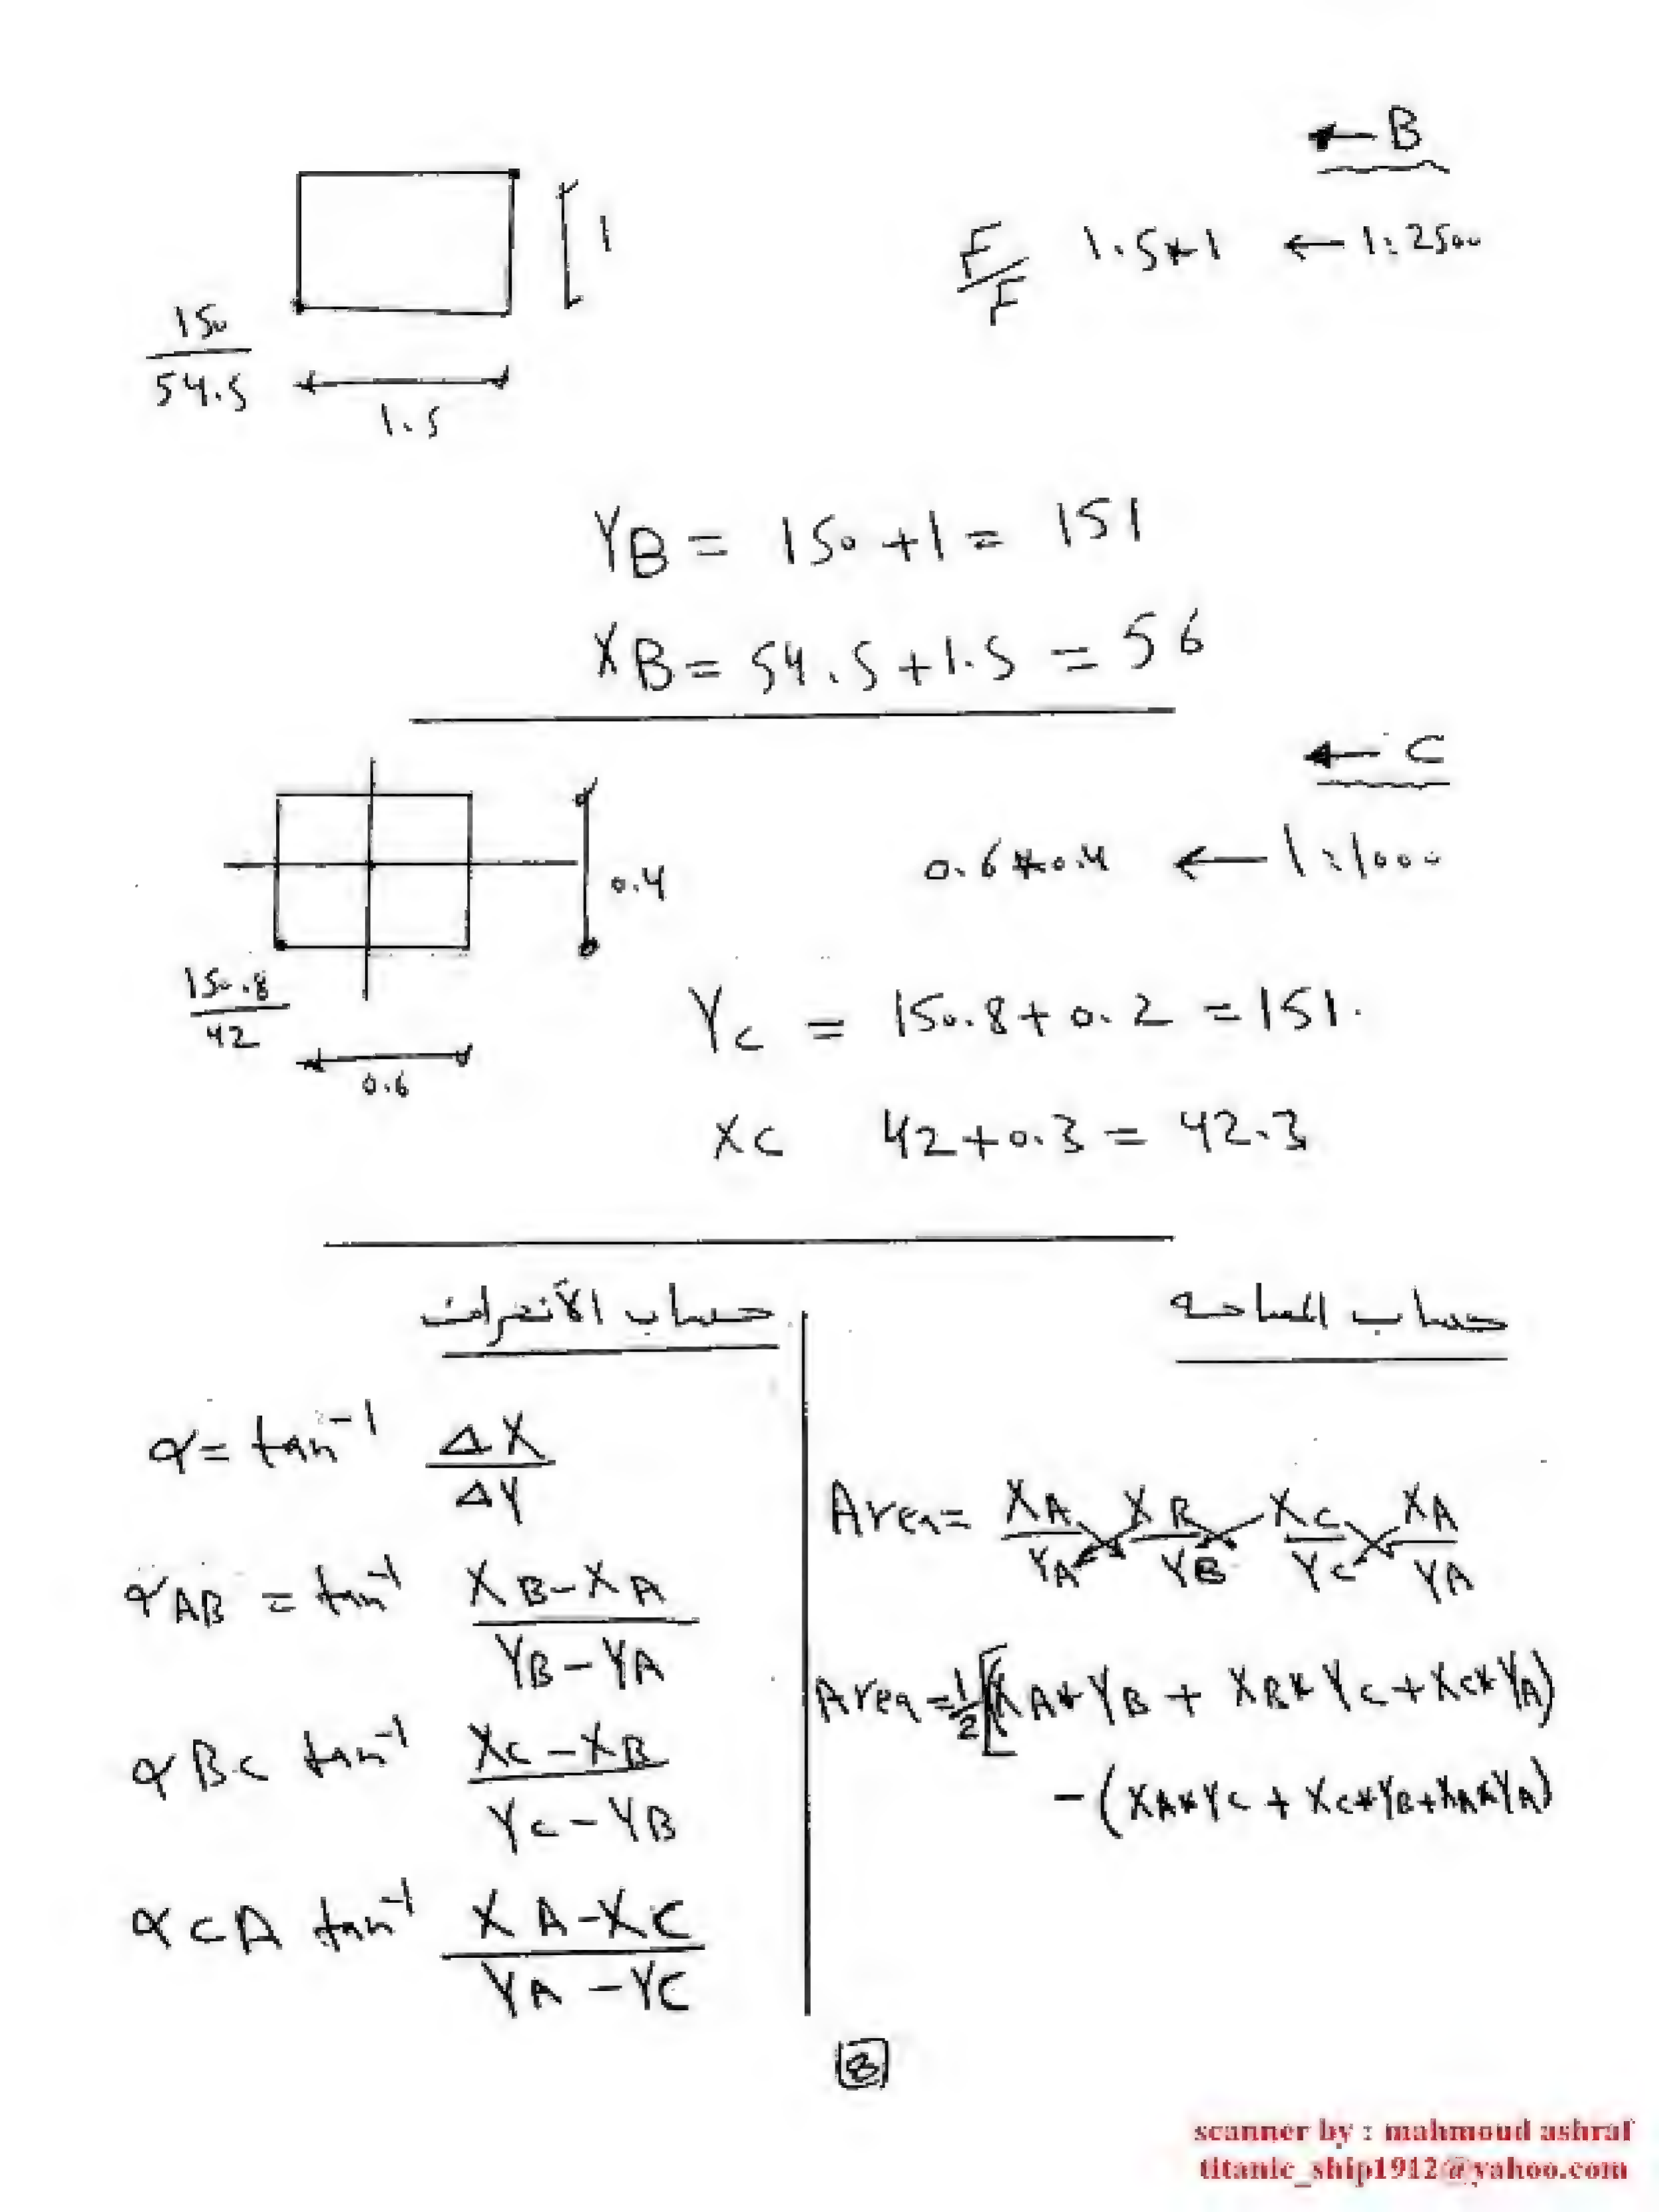 ← B
1
F/F 1.5*1 ← 1:2500
150/54.5
1.5
YB = 150+1 = 151
XB = 54.5+1.5 = 56
← C
0.4
0.6*0.4 ← 1:1000
150.8/42
0.6
Yc = 150.8+0.2 = 151.
Xc 42+0.3 = 42.3
حساب المساحه
Area = XA/YA XB/YB XC/YC XA/YA
Area = 1/2 [(XA*YB + XB*Yc + Xc*YA)
-(XA*Yc + Xc*YB + XA*YA)
حساب الأنحرافات
α = tan⁻¹ ΔX/ΔY
αAB = tan⁻¹ XB-XA/YB-YA
αBc tan⁻¹ Xc-XB/Yc-YB
αCA tan⁻¹ XA-XC/YA-YC
8
scanner by : mahmoud ashraf
titanic_ship1912@yahoo.com